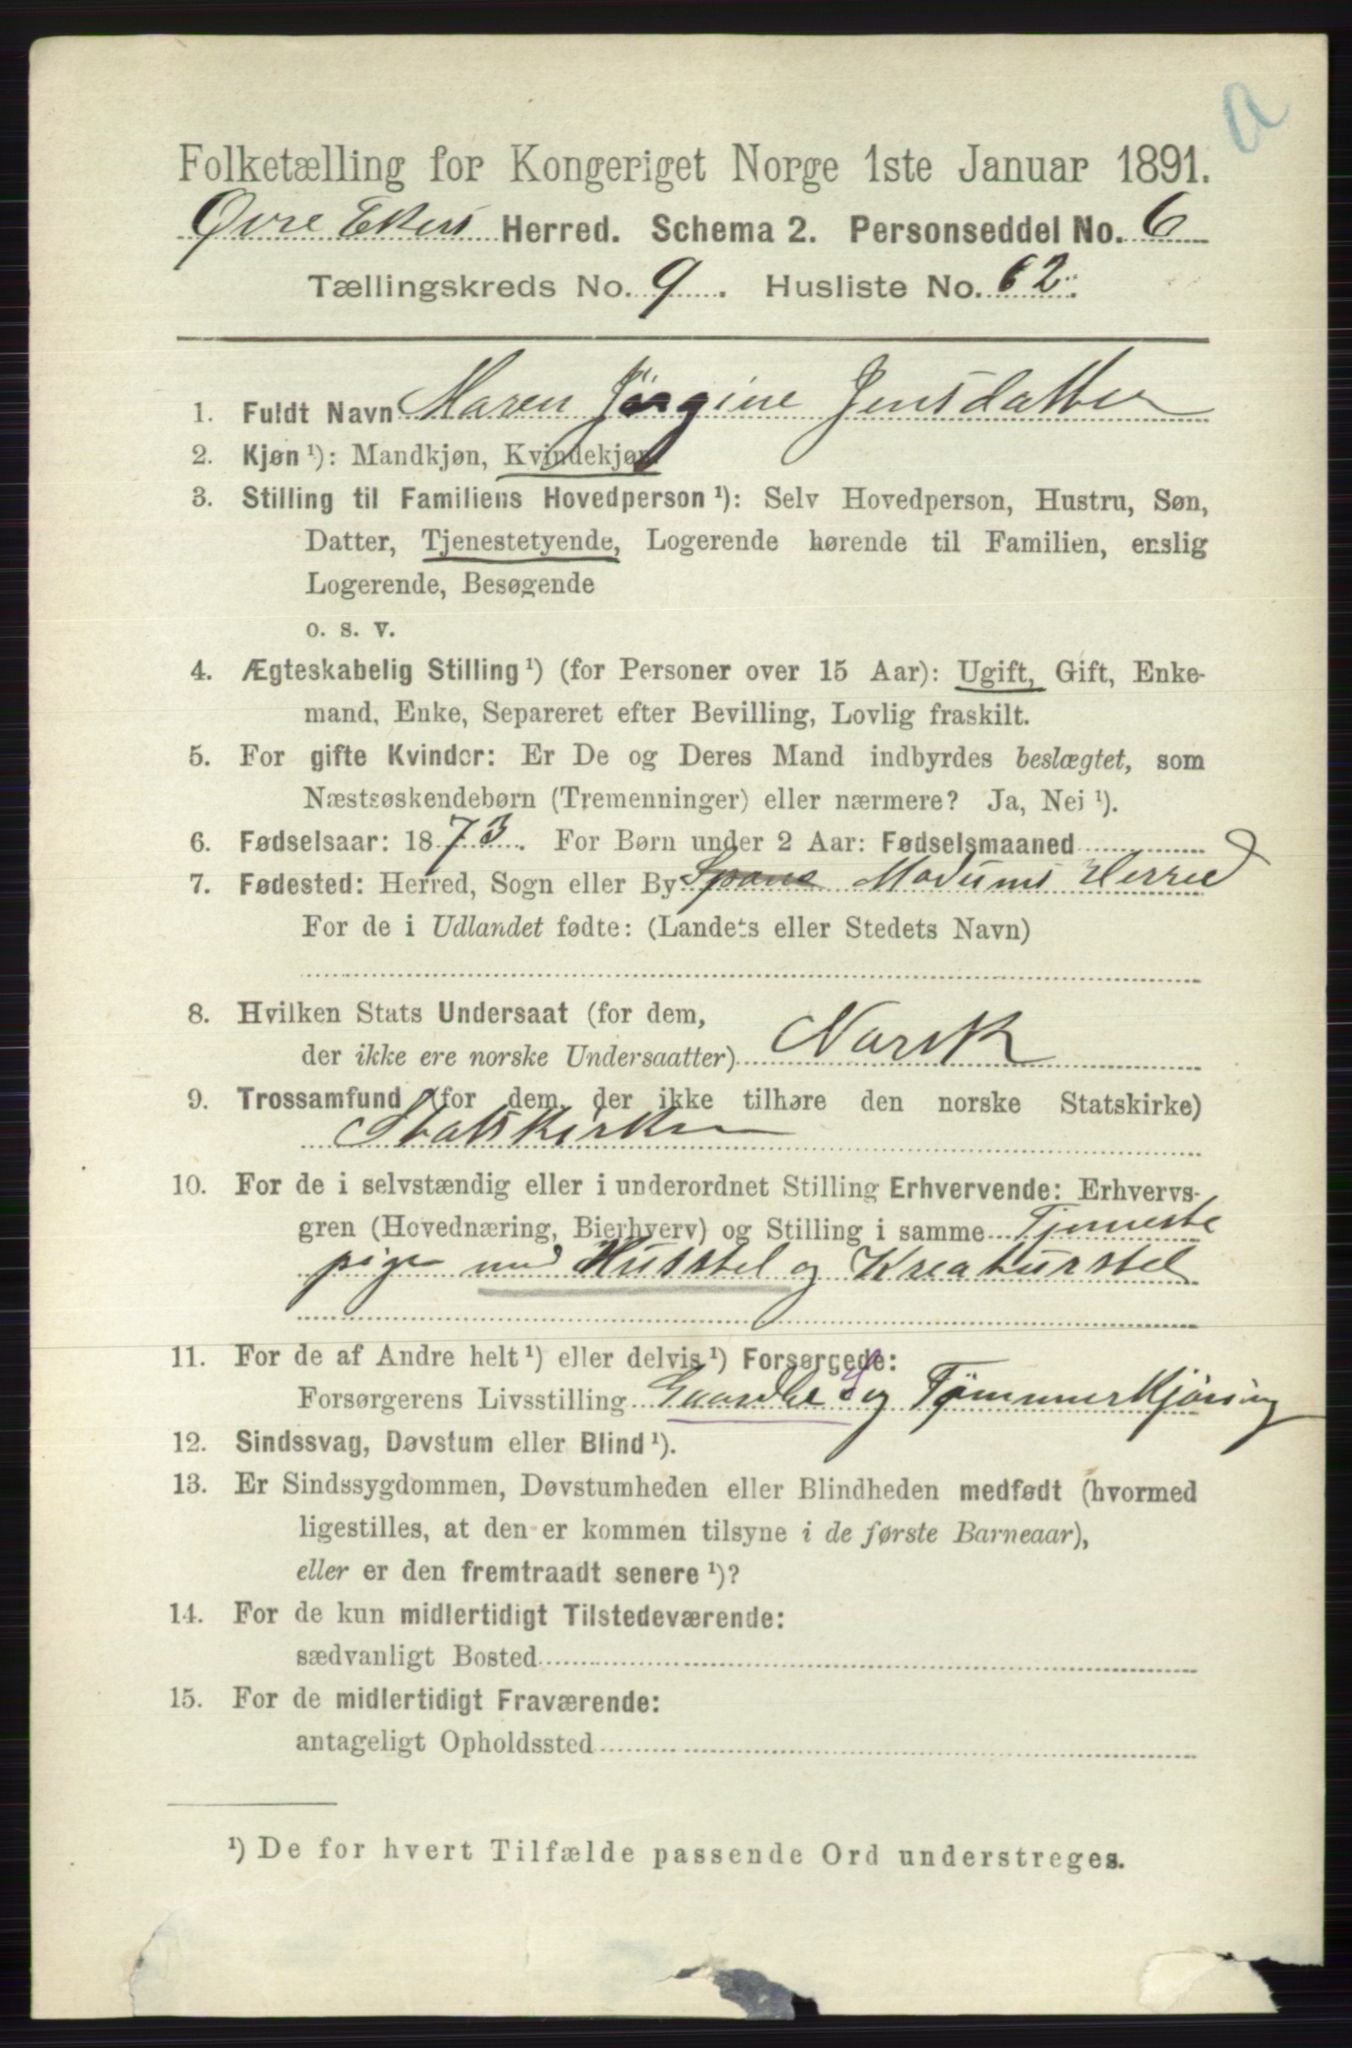 a
Folketælling for Kongeriget Norge 1ste Januar 1891.
Øvre Ekers Herred. Schema 2. Personseddel No. 6
Tællingskreds No. 9. Husliste No. 62.
1. Fuldt Navn Maren Jørgine Jensdatter
2. Kjøn ¹): Mandkjøn, Kvindekjøn
3. Stilling til Familiens Hovedperson ¹): Selv Hovedperson, Hustru, Søn,
Datter, Tjenestetyende, Logerende hørende til Familien, enslig
Logerende, Besøgende
o. s. v.
4. Ægteskabelig Stilling ¹) (for Personer over 15 Aar): Ugift, Gift, Enke-
mand, Enke, Separeret efter Bevilling, Lovlig fraskilt.
5. For gifte Kvinder: Er De og Deres Mand indbyrdes beslægtet, som
Næstsøskendebørn (Tremenninger) eller nærmere? Ja, Nei ¹).
6. Fødselsaar: 1873. For Børn under 2 Aar: Fødselsmaaned
7. Fødested: Herred, Sogn eller By Modums Herred
For de i Udlandet fødte: (Landets eller Stedets Navn)
8. Hvilken Stats Undersaat (for dem,
der ikke ere norske Undersaatter) Norsk
9. Trossamfund (for dem, der ikke tilhøre den norske Statskirke)
Statskirken
10. For de i selvstændig eller i underordnet Stilling Erhvervende: Erhvervs-
gren (Hovednæring, Bierhverv) og Stilling i samme Tjeneste
pige med Husstel og Kreaturstel
11. For de af Andre helt ¹) eller delvis ¹) Forsørgede:
Forsørgerens Livsstilling og Tømmerkjøring
12. Sindssvag, Døvstum eller Blind ¹).
13. Er Sindssygdommen, Døvstumheden eller Blindheden medfødt (hvormed
ligestilles, at den er kommen tilsyne i de første Barneaar),
eller er den fremtraadt senere ¹)?
14. For de kun midlertidigt Tilstedeværende:
sædvanligt Bosted
15. For de midlertidigt Fraværende:
antageligt Opholdssted
¹) De for hvert Tilfælde passende Ord understreges.